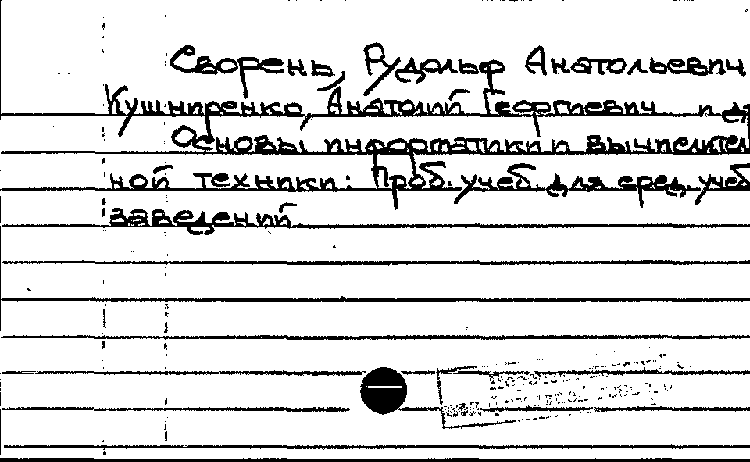 Сворень, Рудольф Анатольевич
Кушниренко, Анатолий Георгиевич и др
Основы информатики и вычислител
ной техники: Проб. учеб. для сред. учеб
заведений